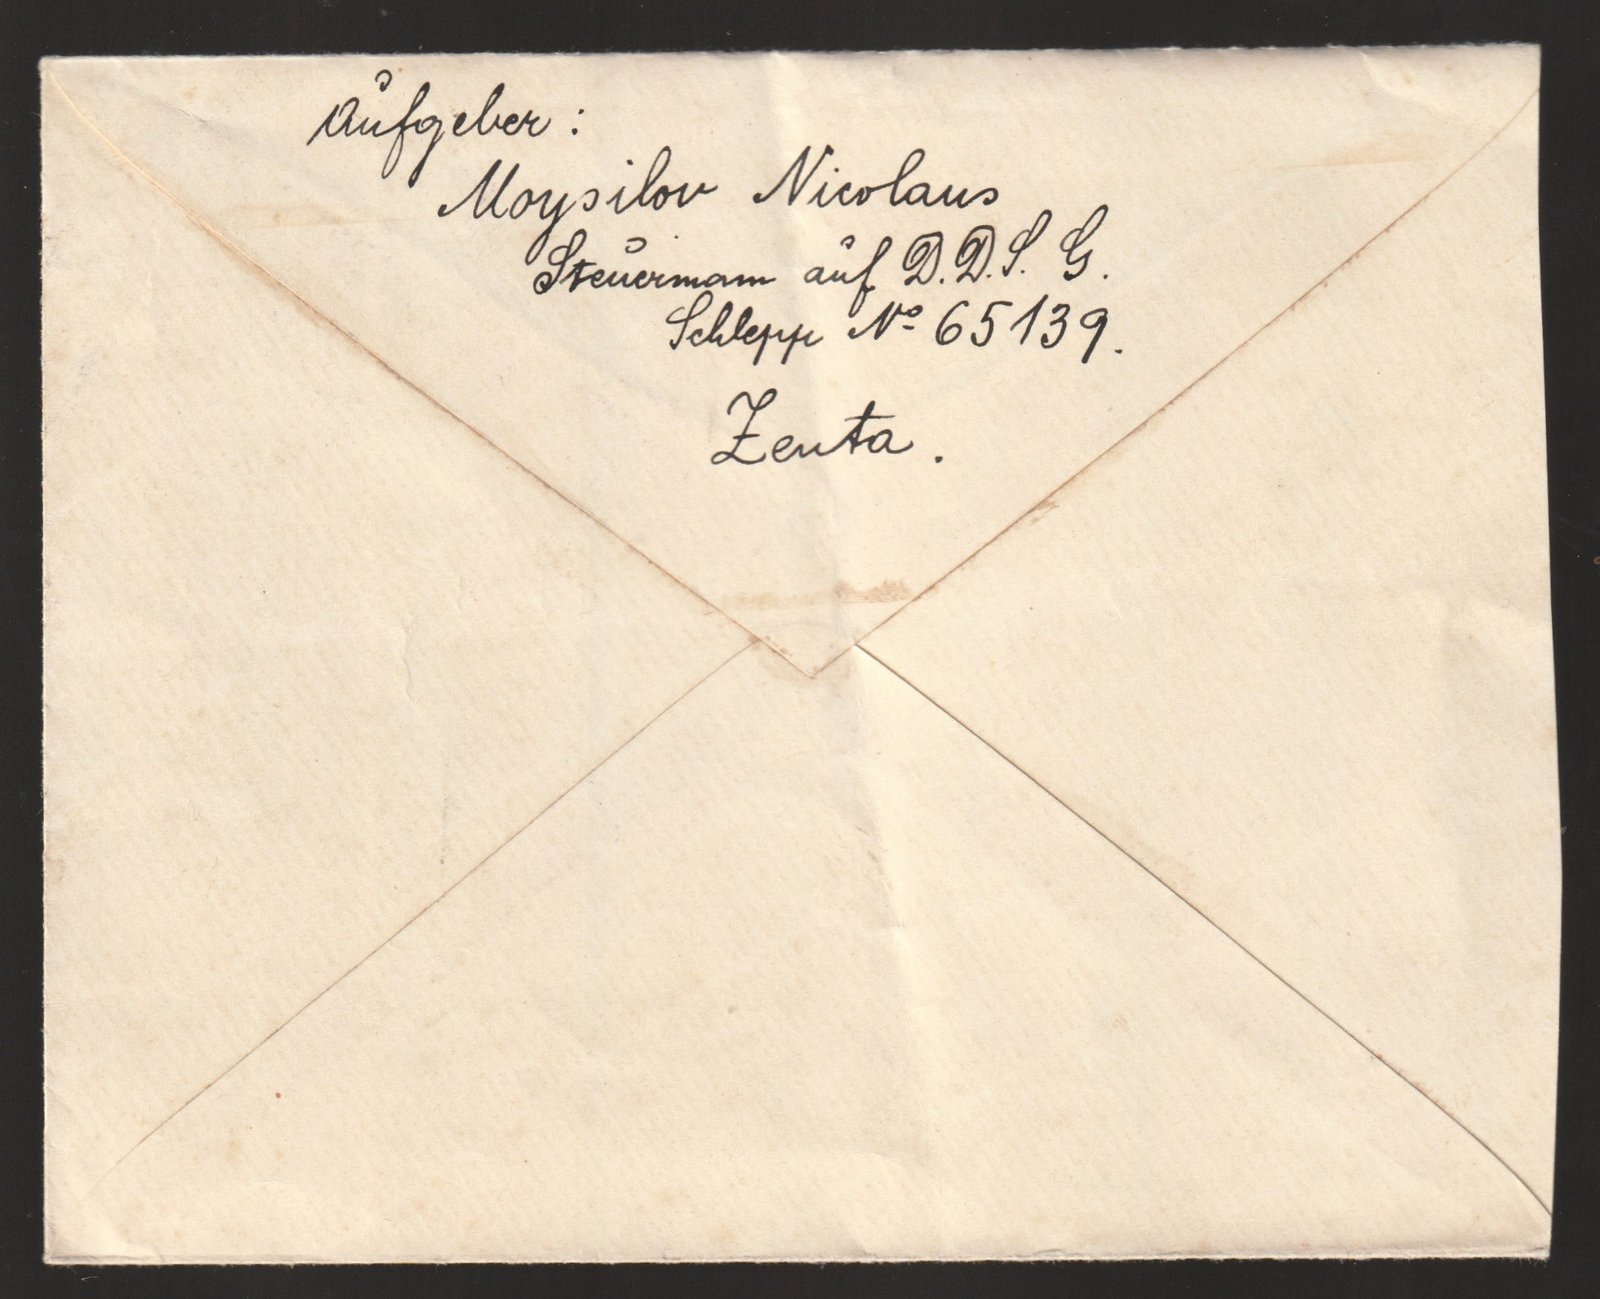 Aufgeber:
Moysilov Nicolaus
Steuermann auf D.D.S.G.
Schlepp No 65139.
Zenta.